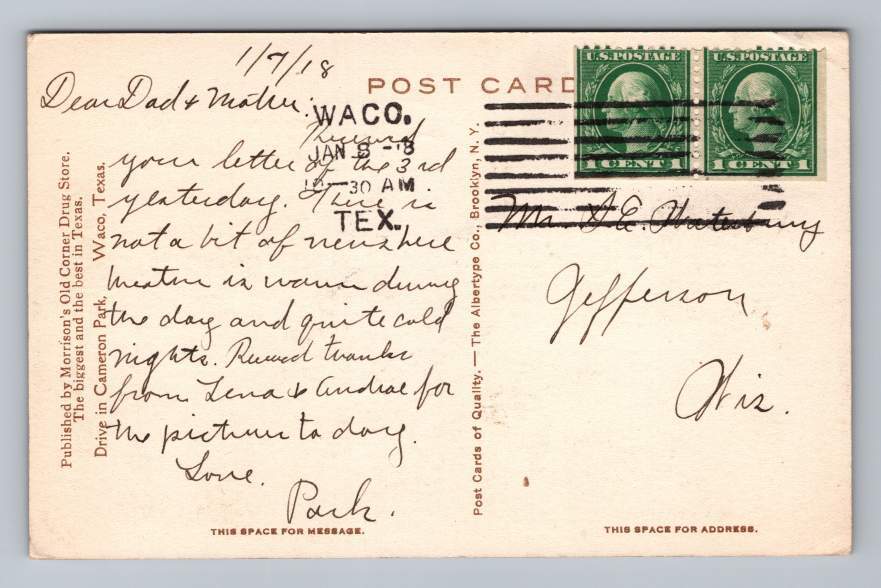 1/7/18
POST CARD
Dear Dad & Mother:
Received
your letter of the 3rd
yesterday. There is
not a bit of news here
Weather is warm during
the day and quite cold
nights. Received thanks
from Lena & Andrae for
the pictures to day.
Love.
Park.
WACO.
JAN 8 -18
30 AM
TEX.
U.S. POSTAGE
1 CENT 1
U.S. POSTAGE
1 CENT 1
Mr. S.E. Waterbury
Jefferson
Wis.
Published by Morrison's Old Corner Drug Store.
The biggest and the best in Texas.
Drive in Cameron Park, Waco, Texas.
Post Cards of Quality. — The Albertype Co., Brooklyn, N. Y.
THIS SPACE FOR MESSAGE.
THIS SPACE FOR ADDRESS.